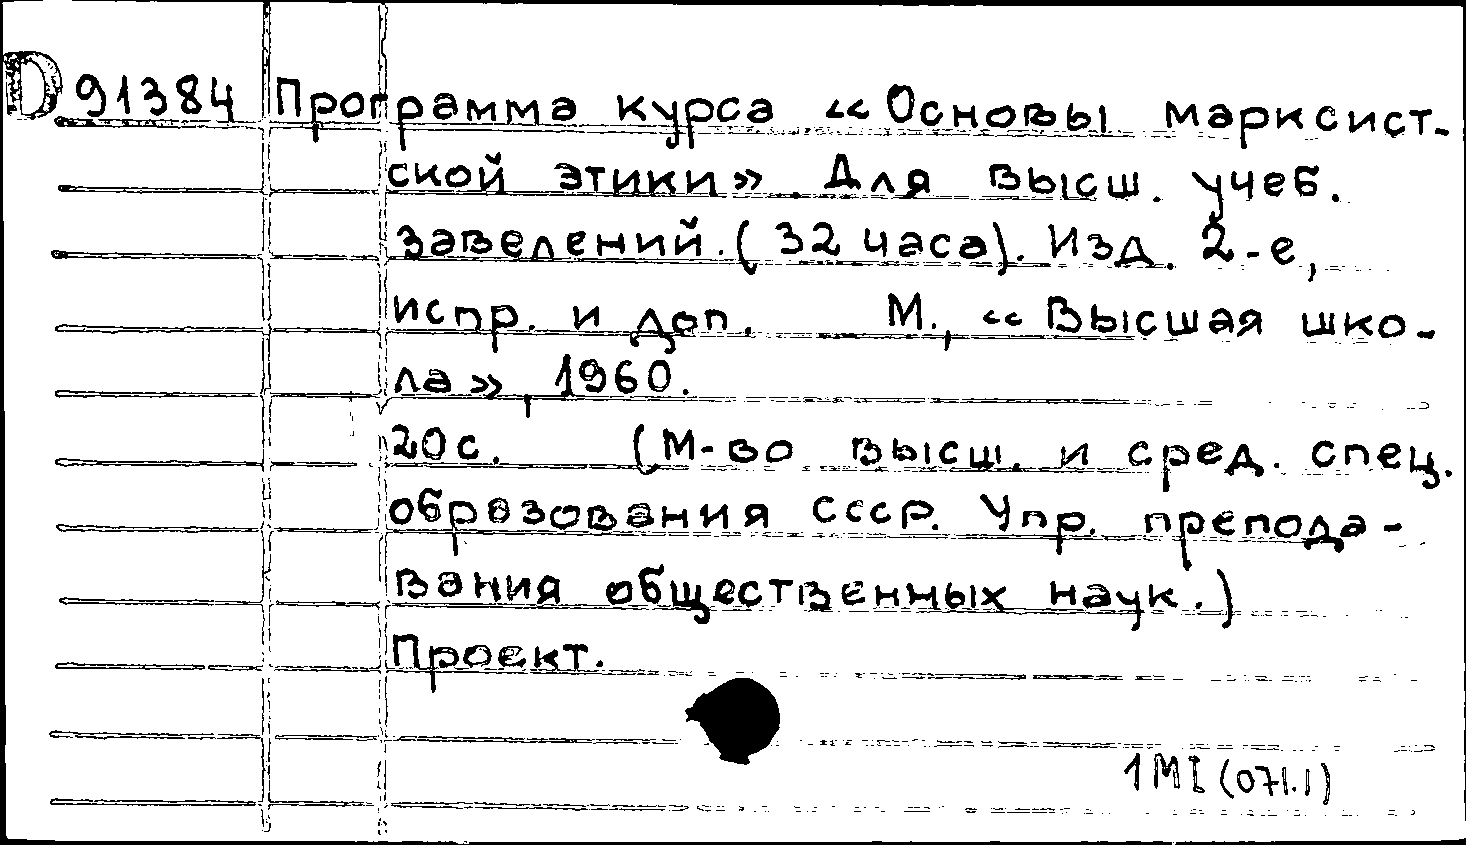 D 91384 Программа курса «Основы марксист-
ской этики». Для высш. учеб.
заведений. (32 часа). Изд. 2-е,
испр. и доп. М., «Высшая шко-
ла», 1960.
20 с. (М-во высш. и сред. спец.
образования СССР. Упр. препода-
вания общественных наук.)
Проект.
1МI(071.1)